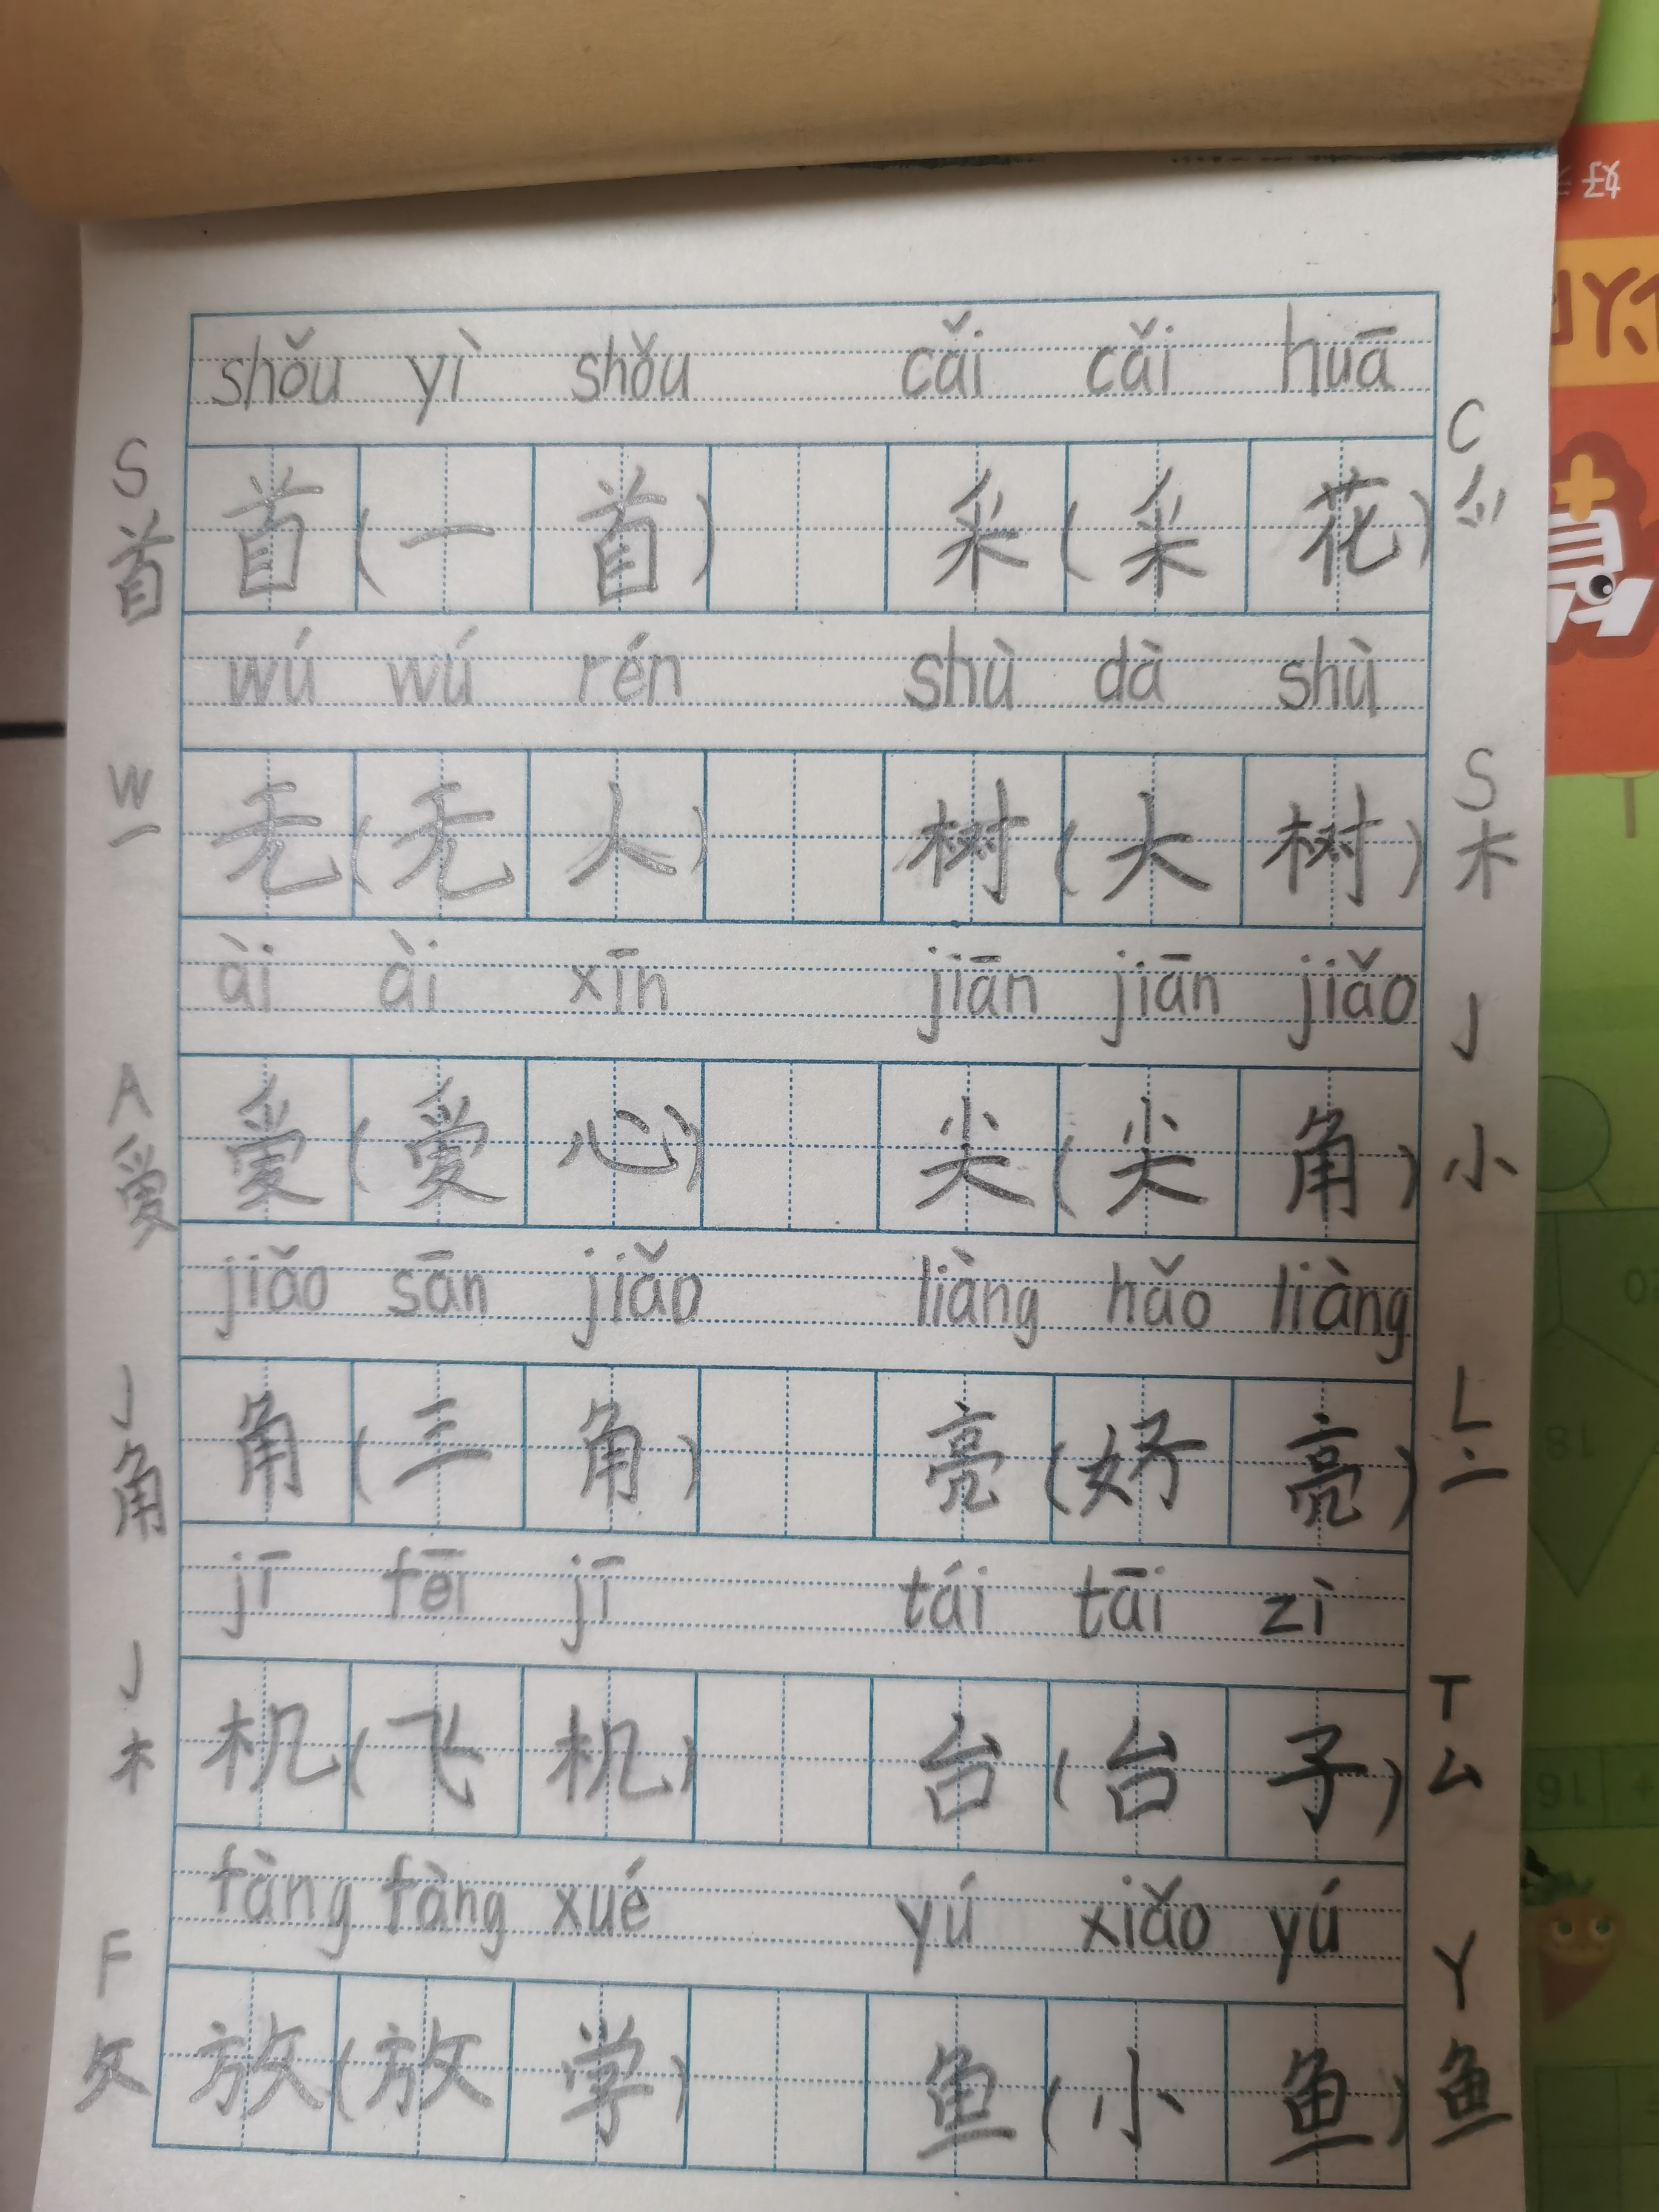 shǒu yì shǒu cǎi cǎi huā
S C
首 首(一首) 采(采花) 爫
wú wú rén shù dà shù
W S
一 无(无人) 树(大树) 木
ài ài xīn jiān jiān jiǎo
A J
爱 爱(爱心) 尖(尖角) 小
jiǎo sān jiǎo liàng hǎo liàng
J L
角 角(三角) 亮(好亮) 亠
jī fēi jī tái tāi zì
J T
木 机(飞机) 台(台子) 厶
fàng fàng xué yú xiǎo yú
F Y
攵 放(放学) 鱼(小鱼) 鱼
18
16